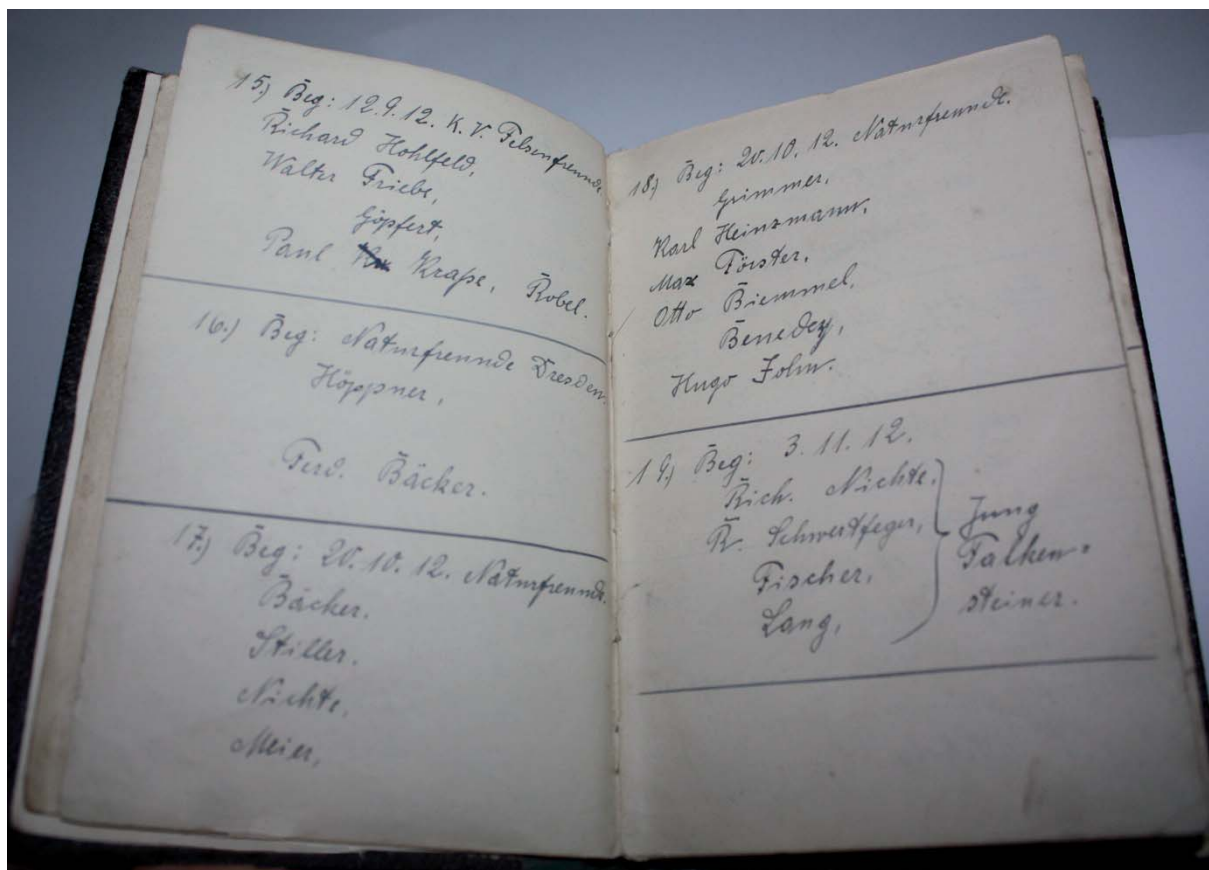 15.) Beg: 12.9.12. K.V. Felsenfreunde
Richard Hohlfeld,
Walter Friebe,
Göpfert,
Paul Kraße, Robel.
16.) Beg: Naturfreunde Dresden.
Höppner,
Ferd. Bäcker.
17.) Beg: 20.10.12. Naturfreunde.
Bäcker.
Stiller.
Nichte,
Meier,
18.) Beg: 20.10.12. Naturfreunde.
Grimmer,
Karl Heinzmann,
Max Förster,
Otto Biemmel,
Benedey,
Hugo John.
19.) Beg: 3.11.12.
Rich. Nichte,
R. Schwertfeger,
Fischer,
Lang,
Jung
Falken=
steiner.